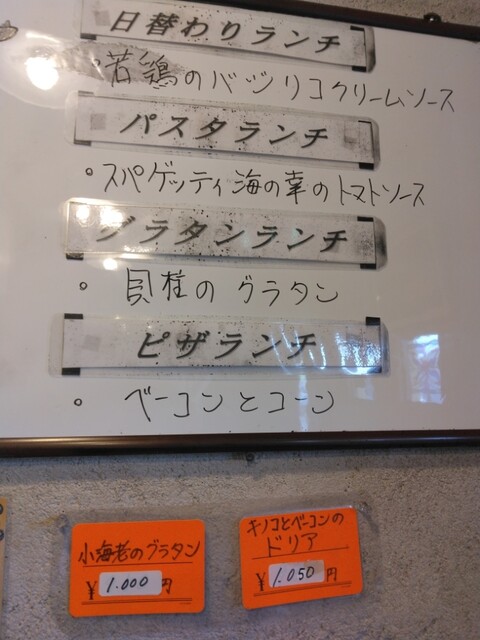 日替わりランチ
若鶏のバッジリコクリームソース
パスタランチ
・スパゲッティ海の幸のトマトソース
グラタンランチ
。貝柱のグラタン
ピザランチ
。ベーコンとコーン
小海老のグラタン
¥1.000円
キノコとベーコンの
ドリア
¥1.050円